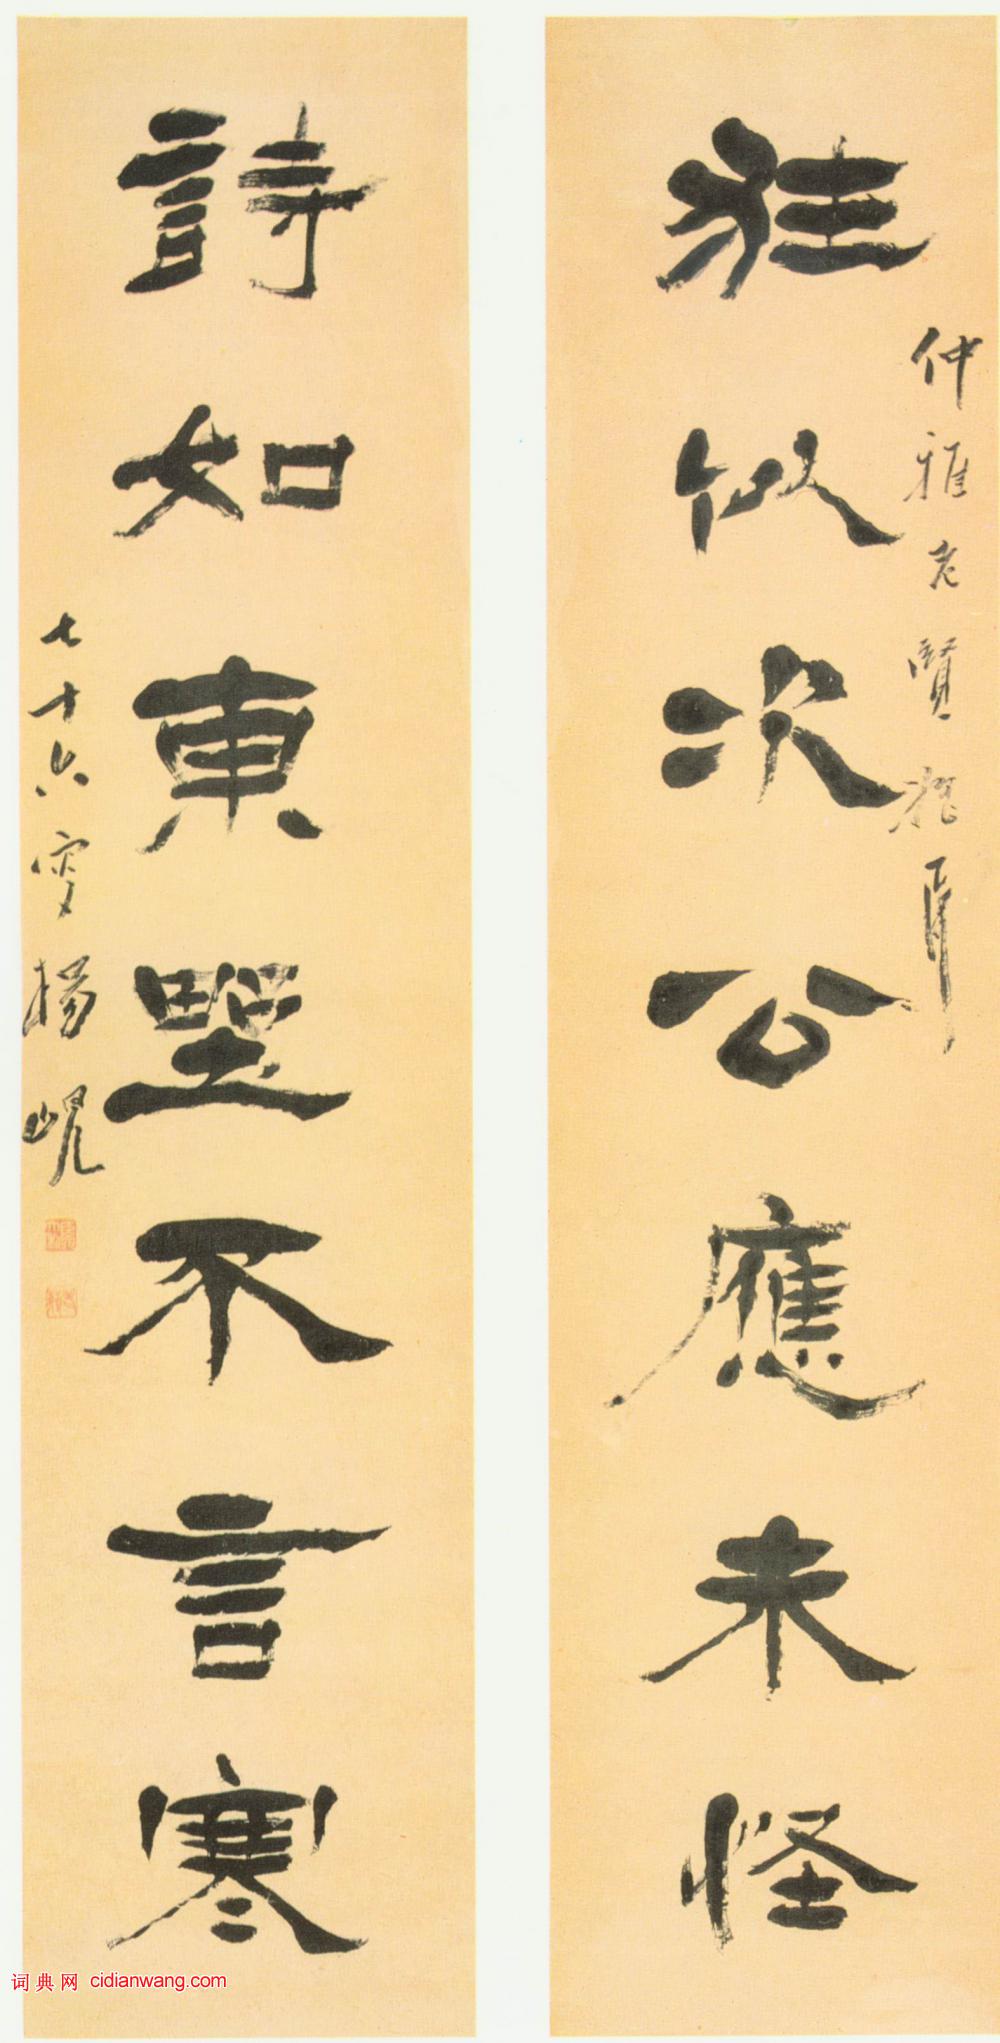 狂似次公應未怪
仲雅老賢屬
詩如東野不言寒
七十六叟楊峴
词典网 cidianwang.com